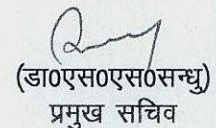 (डा0एस0एस0सन्धु)
प्रमुख सचिव